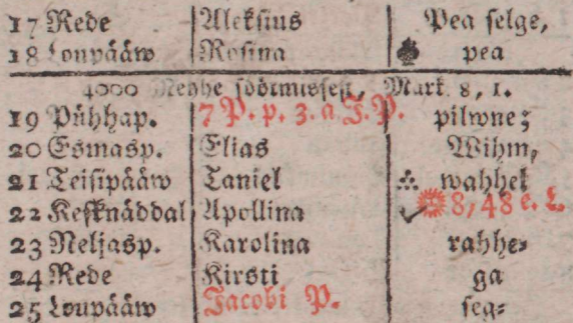 17 Rede Aleksius Pea selge,
18 Loupääw Rosina pea
4000 Mehhe söötmissest, Mark. 8, 1.
19 Pühhap. 7 P. p. 3. a. J. P. pilwne;
20 Esmasp. Elias Wihm,
21 Teisipääw Taniel wahhel
22 Kesknäddal Apollina 8, 48 e. L.
23 Neljasp. Karolina rahhe⸗
24 Rede Kirsti ga
25 Loupääw Jacobi P. seg⸗